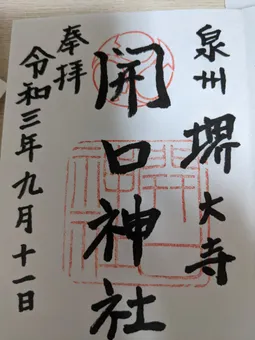 泉州堺大寺
開口神社
奉拝
令和三年九月十一日